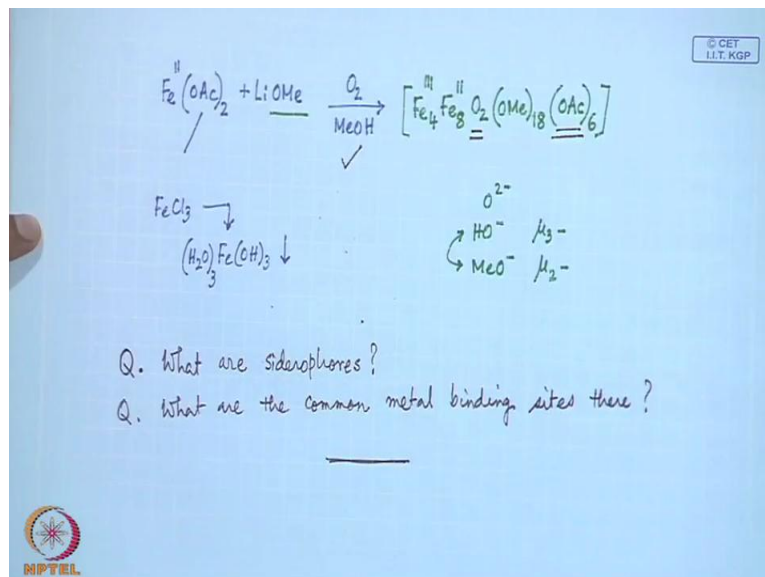 © CET
I.I.T. KGP
Feᴵᴵ(OAc)₂ + LiOMe —O₂/MeOH→ [Fe₄ᴵᴵᴵ Fe₈ᴵᴵ O₂ (OMe)₁₈ (OAc)₆]
✓
FeCl₃ → (H₂O)₃Fe(OH)₃ ↓
O²⁻
HO⁻ μ₃-
MeO⁻ μ₂-
Q. What are siderophores?
Q. What are the common metal binding sites there?
NPTEL